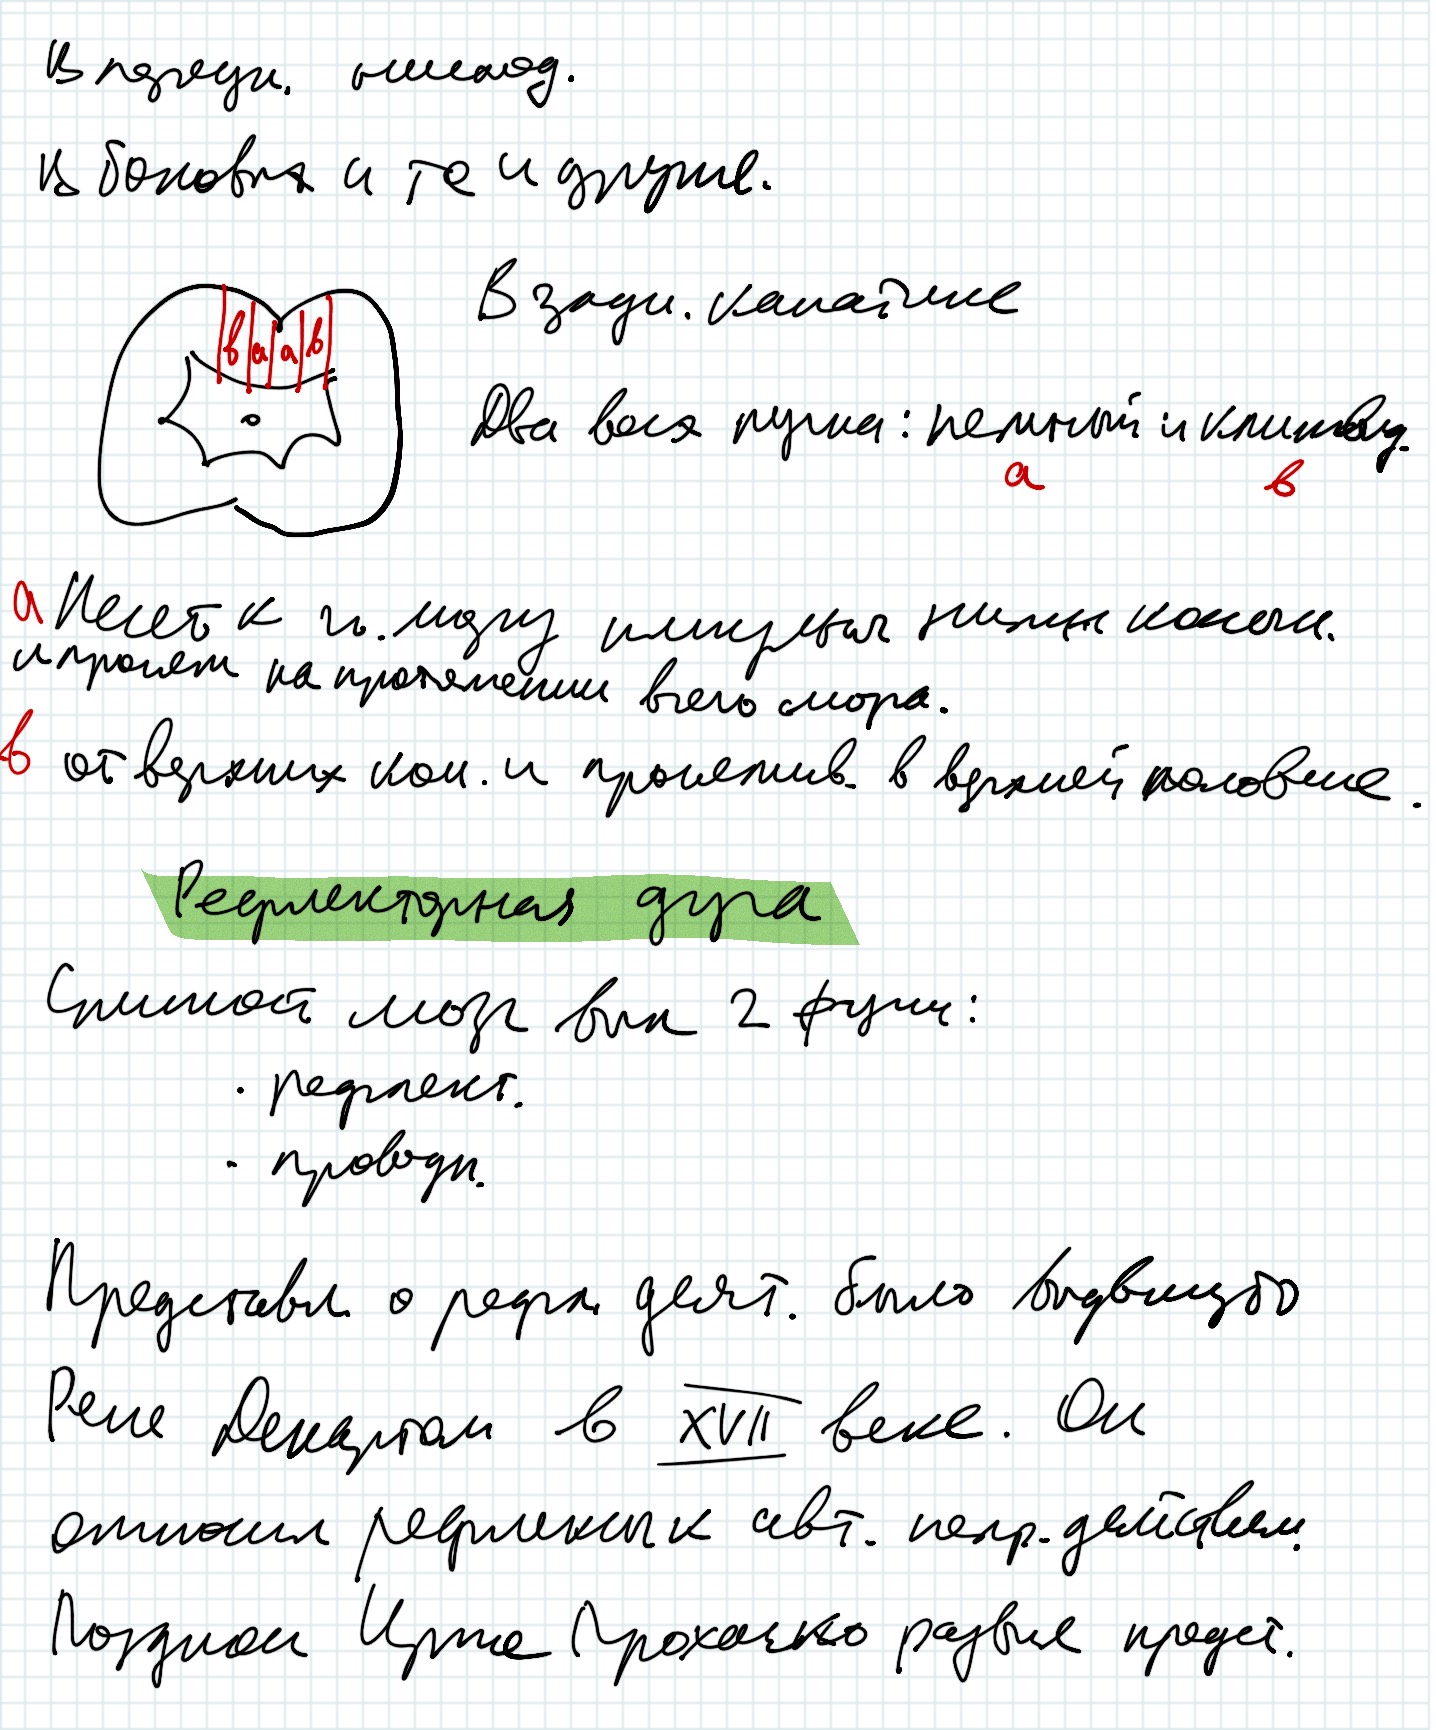 В передн. нисход.
В боковых и те и другие.
В задн. канатике
в а а в
Два восх пучка: нежный и клиновид.
а в
а Несет к гол. мозгу импульсы нижн конечн.
и прослеж на протяжении всего мозга.
в от верхних кон. и прослежив. в верхней половине.
Рефлекторная дуга
Спинной мозг вып 2 функ:
· рефлект.
· проводн.
Представл. о рефл. деят. было выдвинуто
Рене Декартом в XVII веке. Он
относил рефлексы к авт. непр. действиям.
Прохаско развил предст.